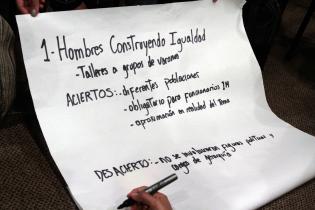 1- Hombres Construyendo Igualdad
- Talleres a grupos de varones
ACIERTOS: - diferentes poblaciones
- obligatorio para Funcionarios IM
- aproximación en realidad del Tema
DESACIERTO: - no se involucraron figuras políticas y
cargos de jerarquía